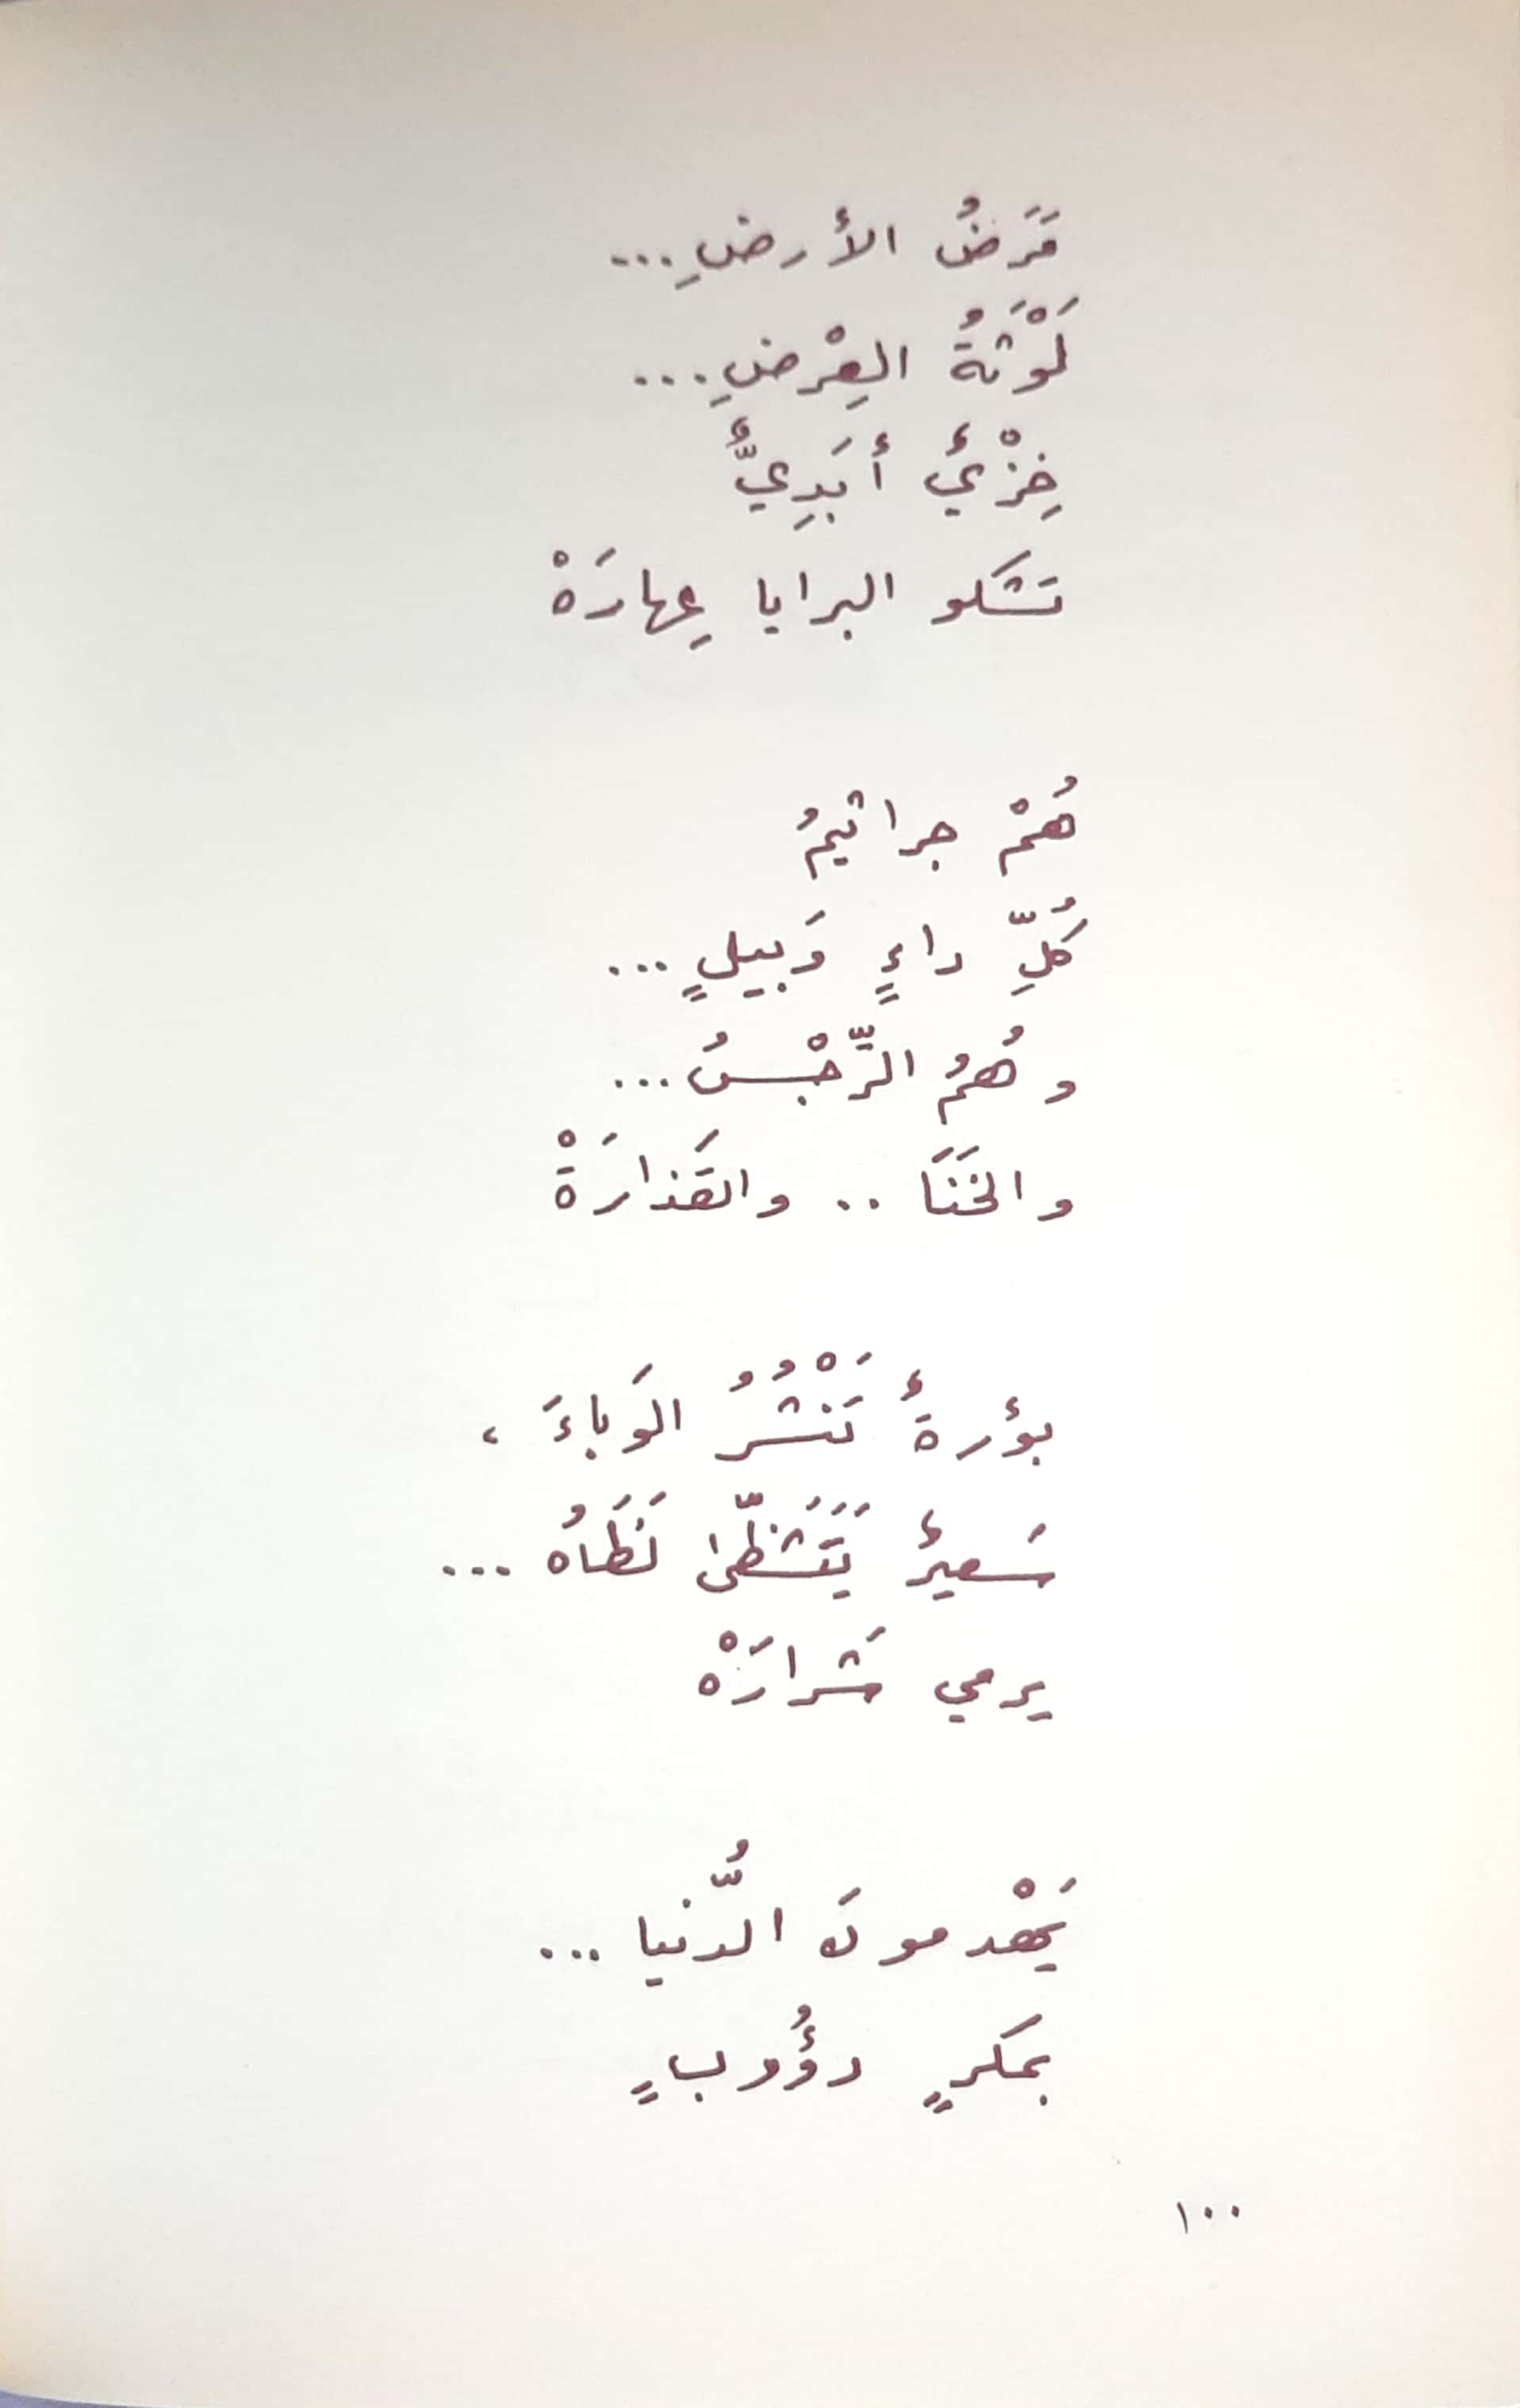 مَرَضُ الأرضِ...
لَوْثَةُ العِرْضِ...
خِزْيٌ أبَدِيٌّ
تَشكو البرايا عِهارَهْ
هُمْ جراثيمُ
كُلِّ داءٍ وَبيلٍ...
وهُمُ الرِّجْسُ...
والخَنَا .. والقَذارَةْ
بؤرةٌ تَنْشُرُ الوَباءَ ،
سَعيرٌ يَتَشَظّىٰ لَظَاهُ ...
يرمي شَرارَهْ
يَهْدمونَ الدُّنيا ...
بمَكرٍ دؤُوبٍ
١٠٠